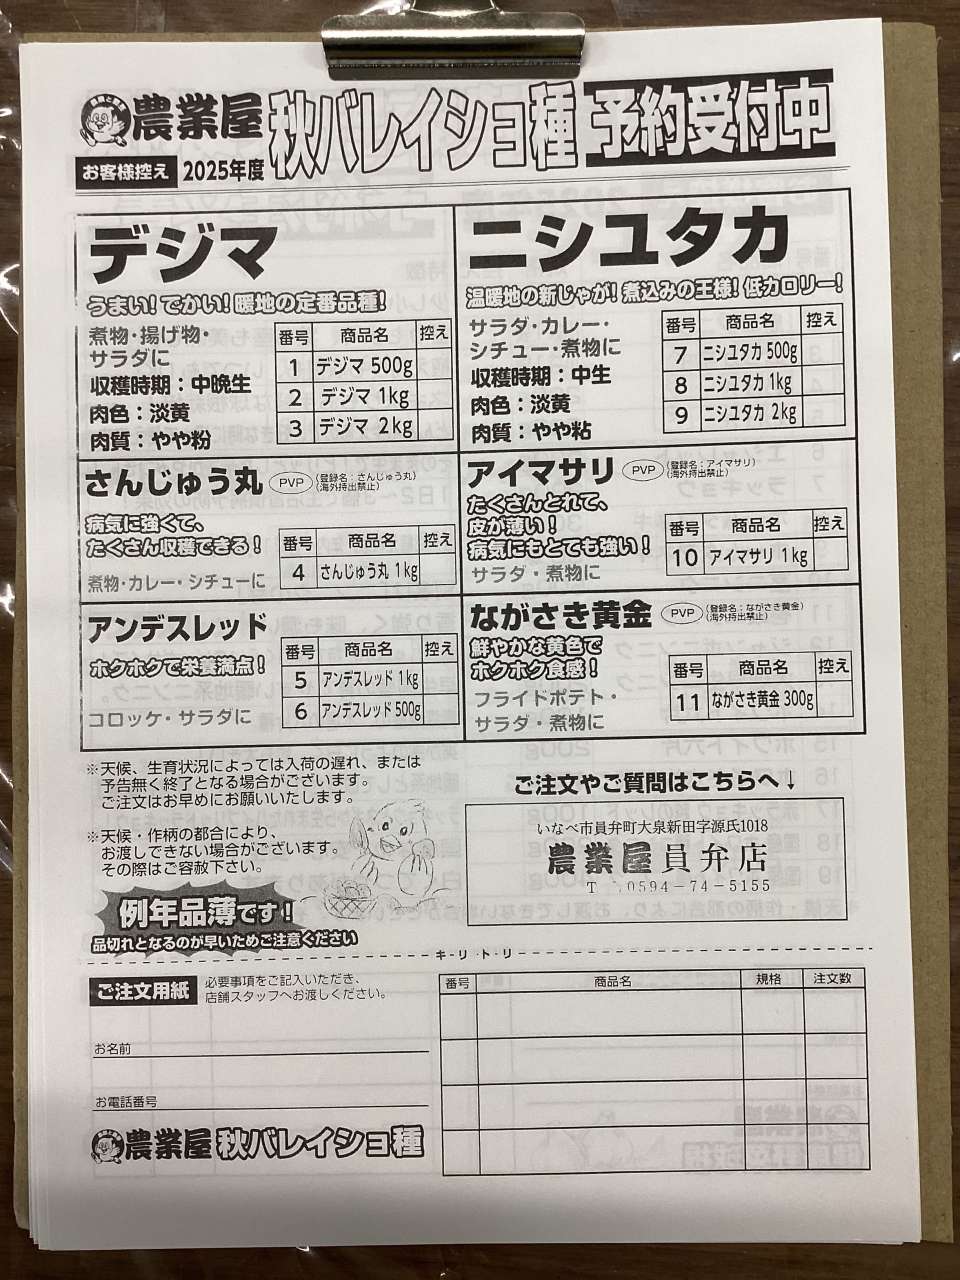 農業屋 秋バレイショ種 予約受付中
お客様控え 2025年度
デジマ
うまい！でかい！暖地の定番品種！
煮物・揚げ物・
サラダに
収穫時期：中晩生
肉色：淡黄
肉質：やや粉
番号 商品名 控え
1 デジマ 500g
2 デジマ 1kg
3 デジマ 2kg
ニシユタカ
温暖地の新じゃが！煮込みの王様！低カロリー！
サラダ・カレー・
シチュー・煮物に
収穫時期：中生
肉色：淡黄
肉質：やや粘
番号 商品名 控え
7 ニシユタカ 500g
8 ニシユタカ 1kg
9 ニシユタカ 2kg
さんじゅう丸 PVP （登録名：さんじゅう丸）
（海外持出禁止）
病気に強くて、
たくさん収穫できる！
煮物・カレー・シチューに
番号 商品名 控え
4 さんじゅう丸 1kg
アイマサリ PVP （登録名：アイマサリ）
（海外持出禁止）
たくさんとれて、
皮が薄い！
病気にもとても強い！
サラダ・煮物に
番号 商品名 控え
10 アイマサリ 1kg
アンデスレッド
ホクホクで栄養満点！
コロッケ・サラダに
番号 商品名 控え
5 アンデスレッド 1kg
6 アンデスレッド 500g
ながさき黄金 PVP （登録名：ながさき黄金）
（海外持出禁止）
鮮やかな黄色で
ホクホク食感！
フライドポテト・
サラダ・煮物に
番号 商品名 控え
11 ながさき黄金 300g
※天候、生育状況によっては入荷の遅れ、または
予告無く終了となる場合がございます。
ご注文はお早めにお願いいたします。
※天候・作柄の都合により、
お渡しできない場合がございます。
その際はご容赦下さい。
例年品薄です！
品切れとなるのが早いためご注意ください
ご注文やご質問はこちらへ↓
いなべ市員弁町大泉新田字源氏1018
農業屋員弁店
T 0594-74-5155
キ・リ・ト・リ
ご注文用紙 必要事項をご記入いただき、
店舗スタッフへお渡しください。
お名前
お電話番号
農業屋 秋バレイショ種
番号 商品名 規格 注文数